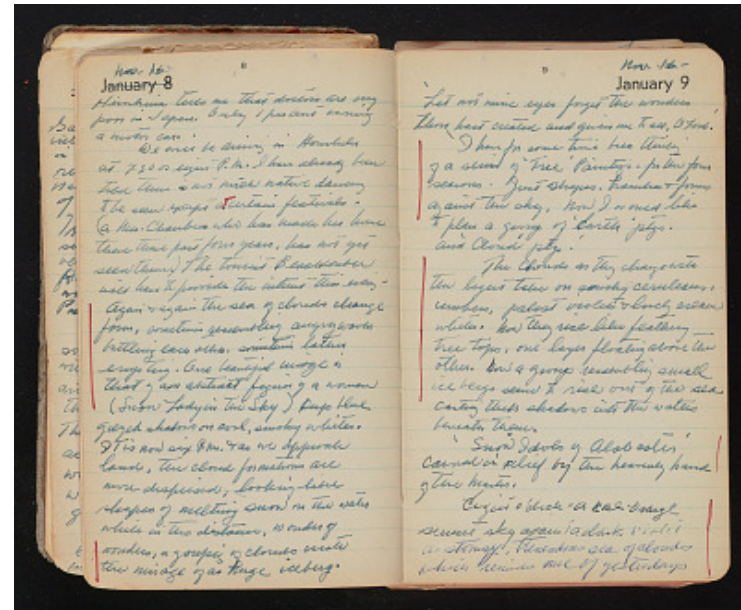 Nov. 16-
8
January 8
tells me that doctors are very
poor in Only 1 percent owning
a motor car.
We will be arriving in Honolulu
at 7:30 or eight P.M. I have already been
told there is not much native dancing
to be seen except at certain festivals.
(a Mrs. Chambers who has made her home
there these past four years, has not yet
seen them) The tourist Beachcomber
will have to provide the interest this eve.-
Again & again the sea of clouds change
form, sometimes resembling angry waves
battling each other,
erupting. One beautiful image is
that of an abstract figure of a woman
(Snow Lady in the Sky) Huge blue
glazed shadows on cool, smoky whites.
It is now six P.M. & as we approach
land, the cloud formations are
more dispersed, looking like
shapes of melting snow on the water
while in the distance, wonder of
wonders, a group of clouds create
the mirage of a huge iceberg.
Nov. 16-
9
January 9
"Let not mine eyes forget the wonders
Thou hast created and given me to see, O Lord."
I have for some time been thinking
of a series of "Tree" Paintings - for the four
seasons. Just shapes, branches & forms
against the sky. Now I would like
to plan a group of "Earth" ptgs.
and Cloud ptgs.
The Clouds as they change with
the light take on smoky ceruleans,
umbers, palest violet & lovely cream
whites. Now they rise like feathery
tree tops, one layer floating above the
other. Now a group resembling small
ice bergs seem to rise out of the sea
casting their shadows into the waters
beneath them.
"Snow Idols of Alabaster"
carved in relief by the heavenly hand
of the master.
Eight o'clock - a orange
sunset sky against a dark violet
a stormy, sea of clouds
which reminds me of yesterdays